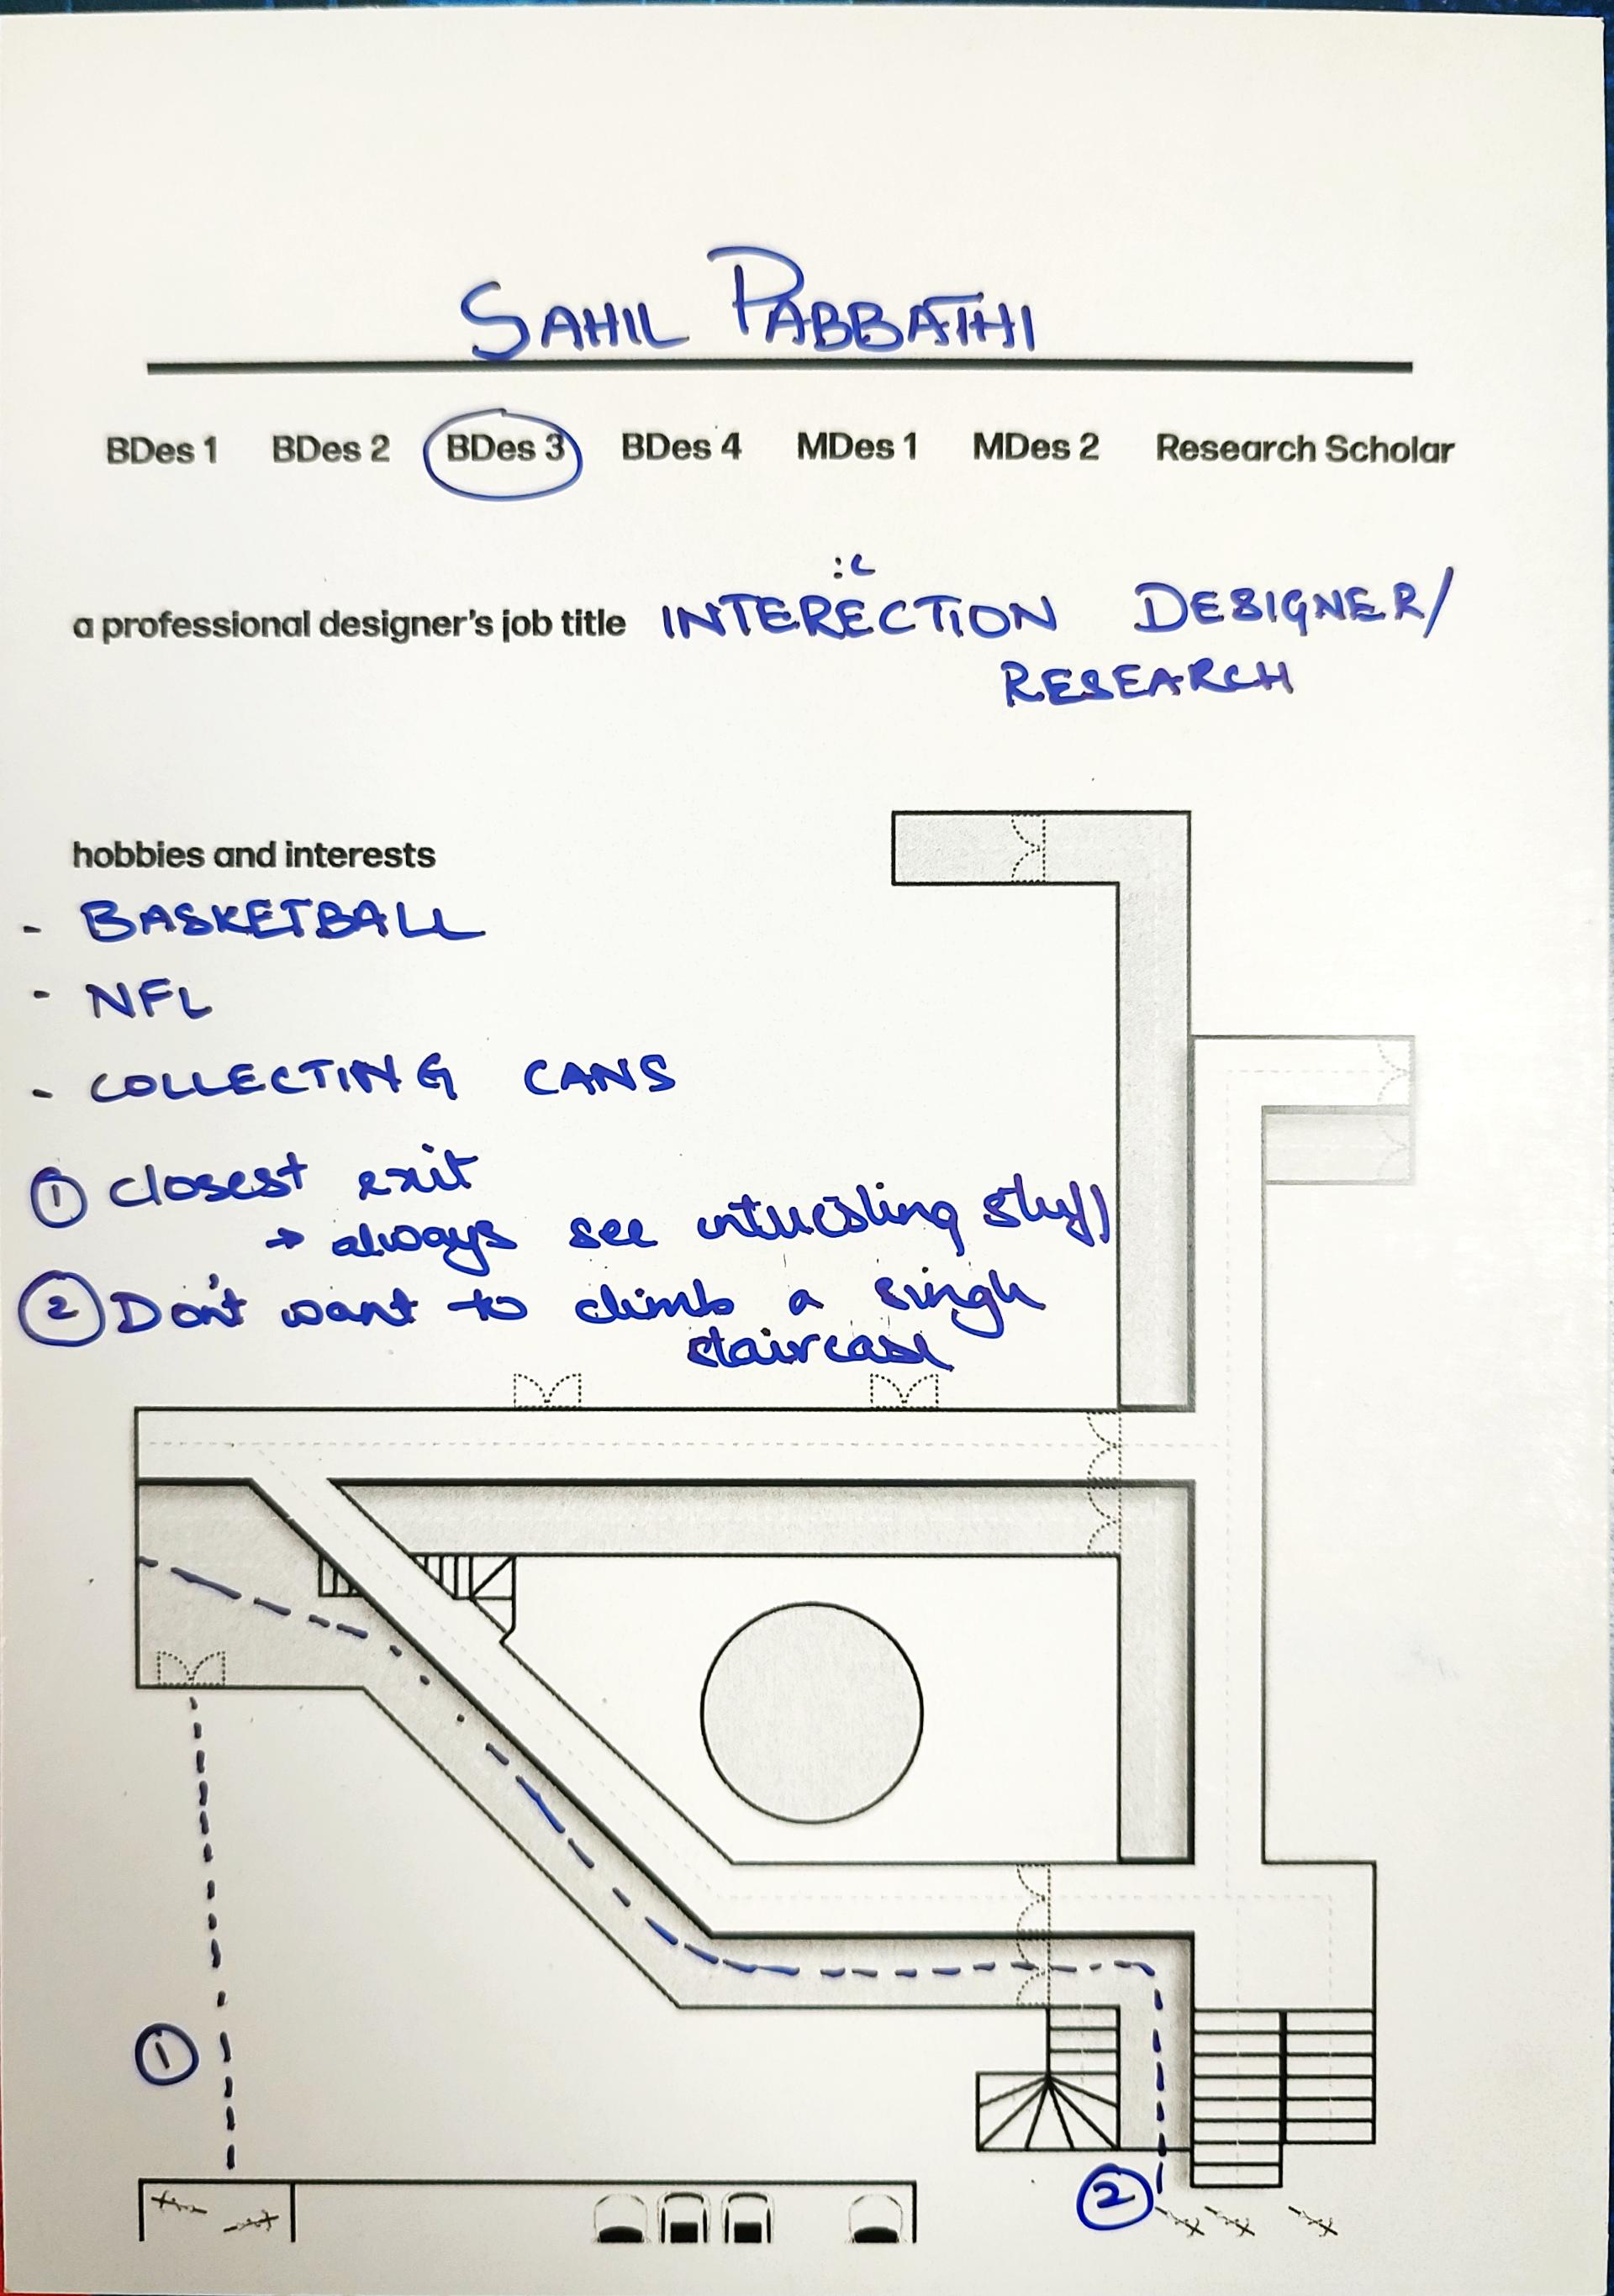 SAHIL PABBATHI
BDes 1 BDes 2 BDes 3 BDes 4 MDes 1 MDes 2 Research Scholar
:c
a professional designer's job title INTERECTION DESIGNER/
RESEARCH
hobbies and interests
- BASKETBALL
- NFL
- COLLECTING CANS
① Closest exit
→ always see interesting stuff
② Don't want to climb a single
staircase
①
②